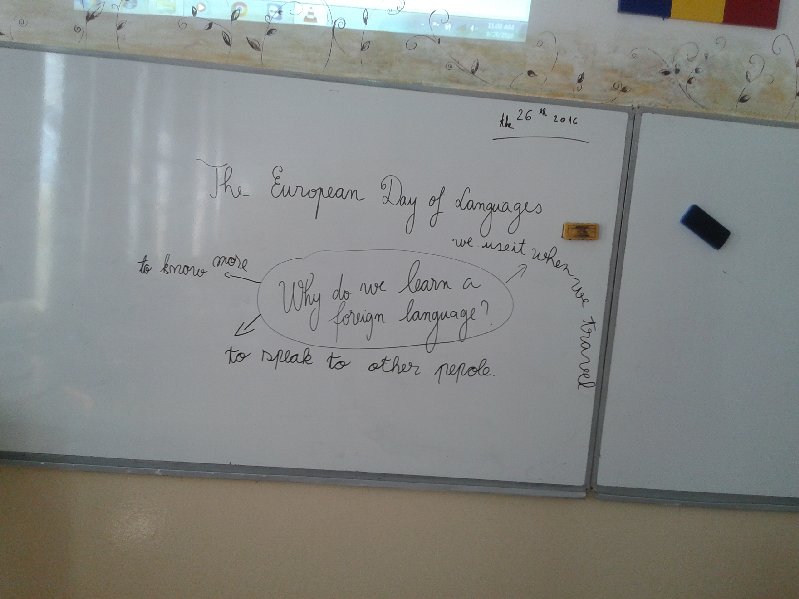 the 26 th 2016
The European Day of Languages
we use it when we travel
to know more
Why do we learn a
foreign language?
to speak to other pepole.